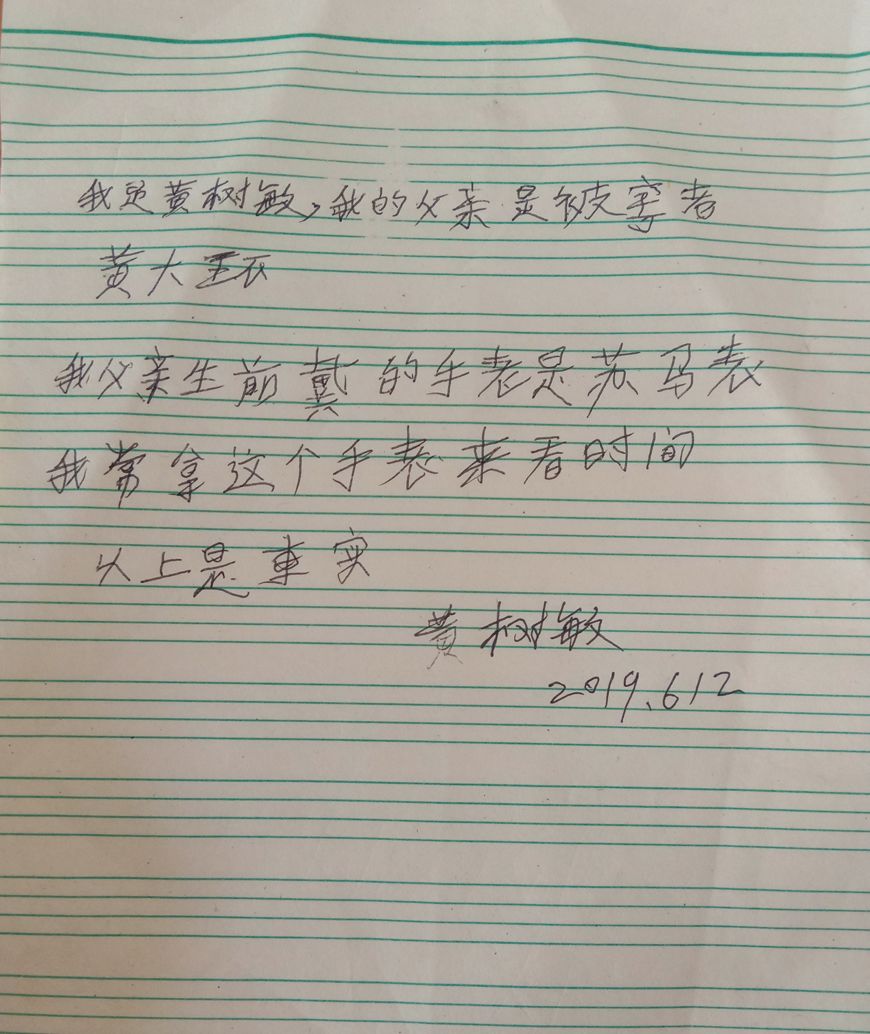 我是黄树敏,我的父亲是被害者
黄大
我父亲生前戴的手表是苏马表
我常拿这个手表来看时间
以上是事实
黄树敏
2019.612